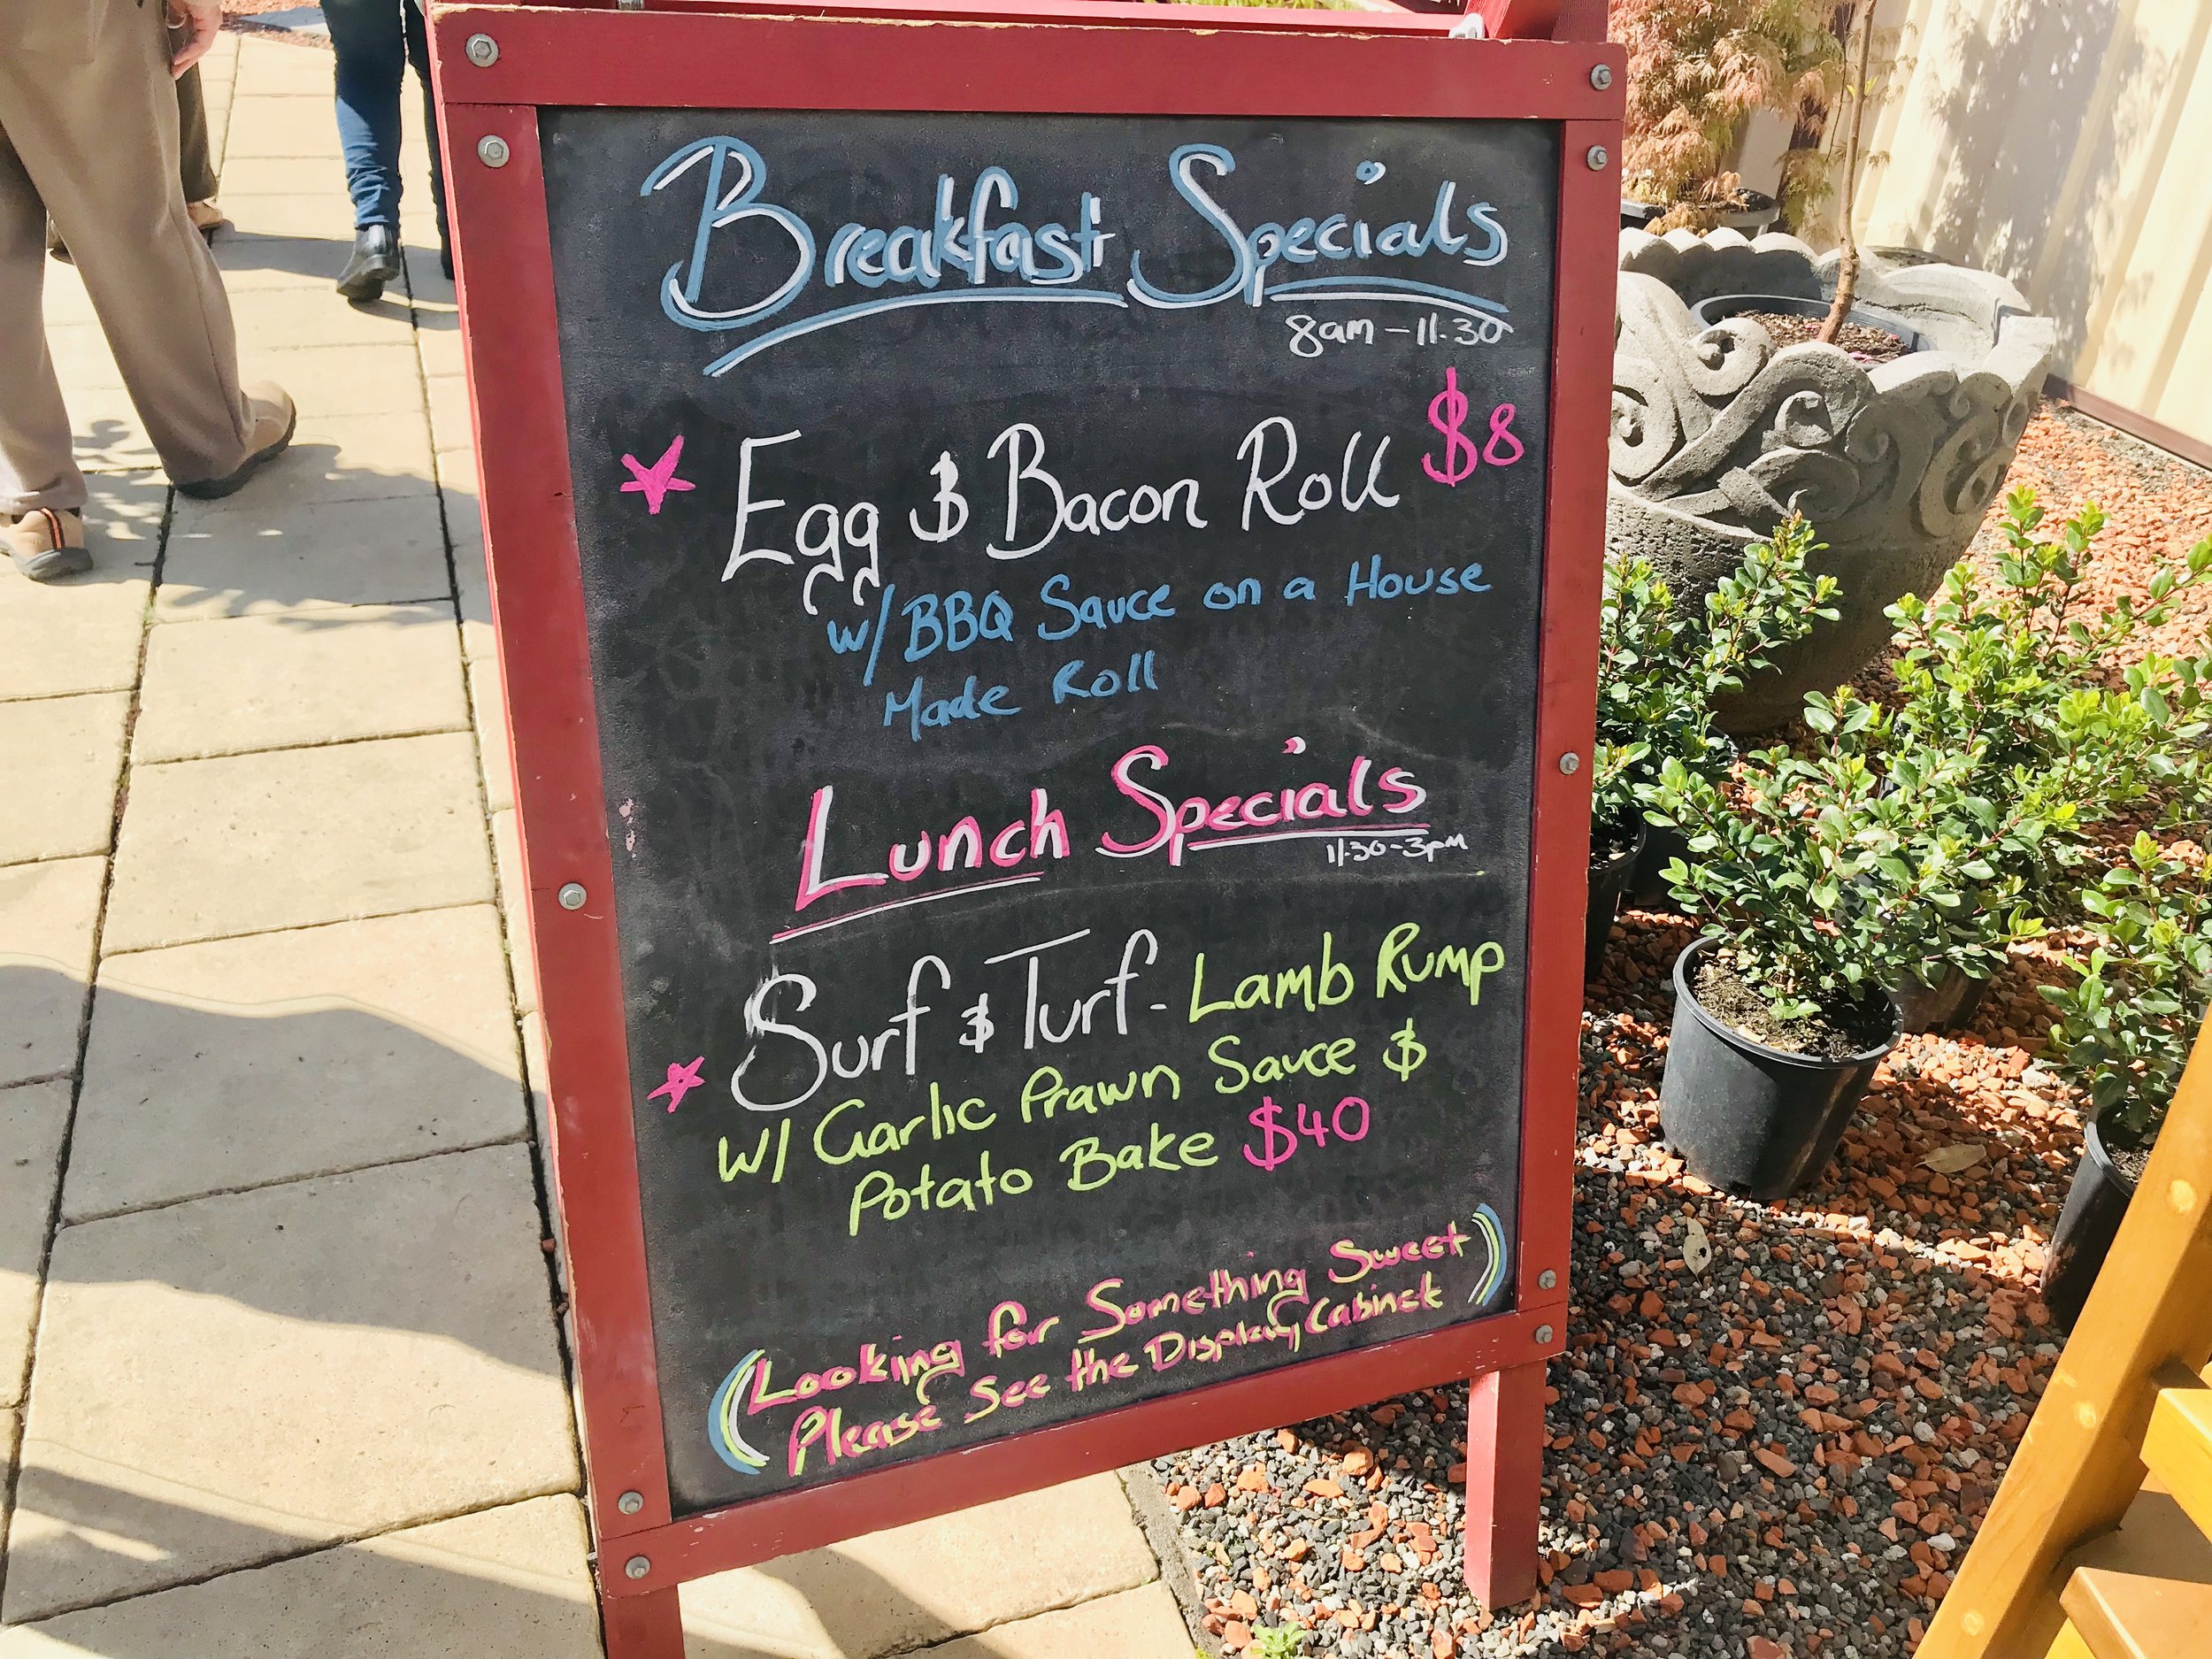 Breakfast Specials
8am - 11.30
Egg & Bacon Roll $8
w/ BBQ Sauce on a House
Made Roll
Lunch Specials
11.30 - 3pm
Surf & Turf - Lamb Rump
w/ Garlic Prawn Sauce &
Potato Bake $40
(Looking for Something Sweet
Please See the Display Cabinet)